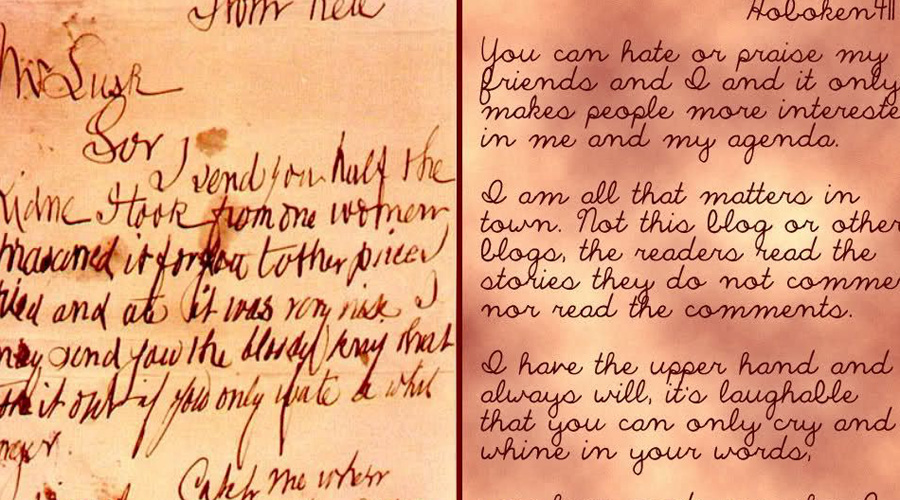 From hell
Mr Lusk
Sor
I send you half the
Kidne I took from one women
prasarved it for you tother piece
fried and ate it was very nise I
may send you the bloody knif that
took it out if you only wate a whil
longer.
Catch me when
Hoboken411
You can hate or praise my
friends and I and it only
makes people more intereste
in me and my agenda.
I am all that matters in
town. Not this blog or other
blogs, the readers read the
stories they do not comme
nor read the comments.
I have the upper hand and
always will, it's laughable
that you can only cry and
whine in your words,